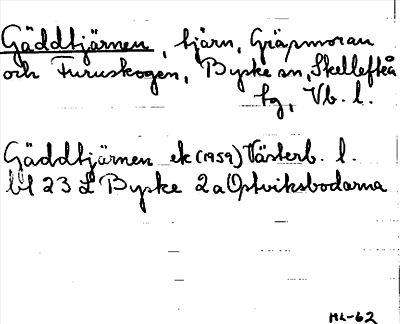 Gäddtjärnen, tjärn, Gräpmoran
och Furuskogen, Byske sn, Skellefteå
tg, Vb. l.
Gäddtjärnen ek (1959) Västerb. l.
bl 23 L Byske 2a Ostviksbodarna
ML-62